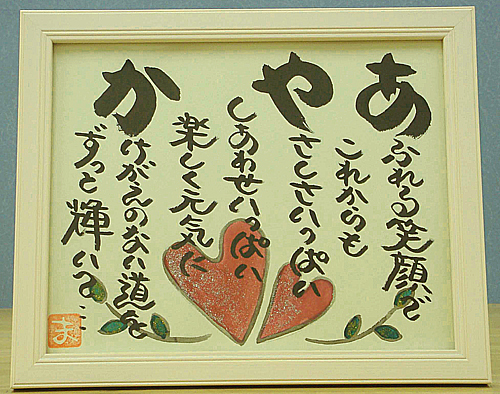 あふれる笑顔で
これからも
やさしさいっぱい
しあわせいっぱい
楽しく元気に
かけがえのない道を
ずっと輝いて…
ま